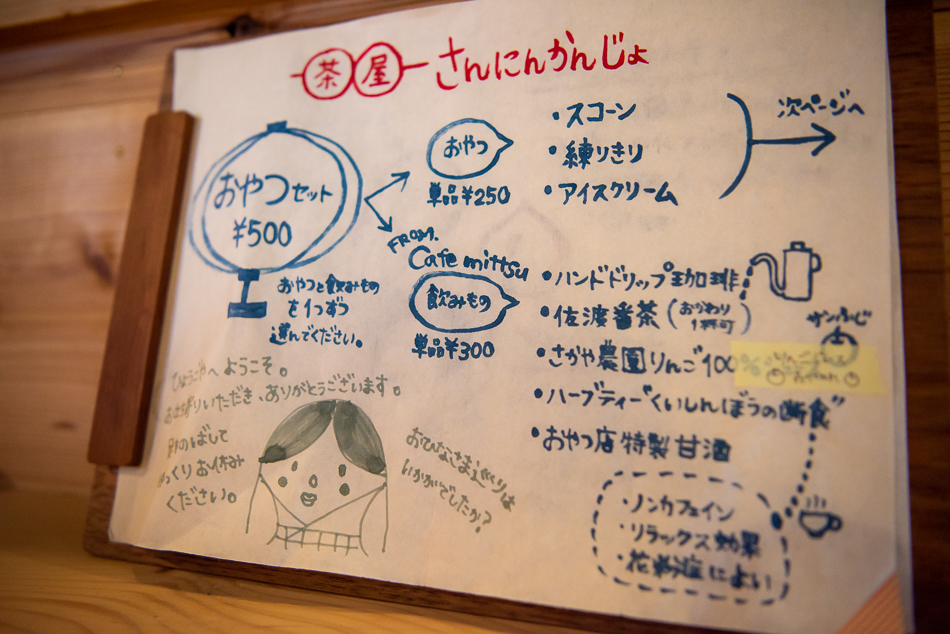 茶屋 さんにんかんじょ
おやつセット
¥500
おやつと飲みもの
を1つずつ
選んでください。
おやつ
単品¥250
・スコーン
・練りきり
・アイスクリーム
次ページへ
FROM.
Cafe mittsu
飲みもの
単品¥300
・ハンドドリップ珈琲
・佐渡番茶(おかわり1杯可)
・さかや農園りんご100%
サンふじ
・ハーブティー"くいしんぼうの断食"
・おやつ店特製甘酒
・ノンカフェイン
・リラックス効果
・花粉症によい
ひょうごやへようこそ。
お立ち寄りいただき、ありがとうございます。
のばして
ゆっくりお休み
ください。
おひなさま巡りは
いかがでしたか?